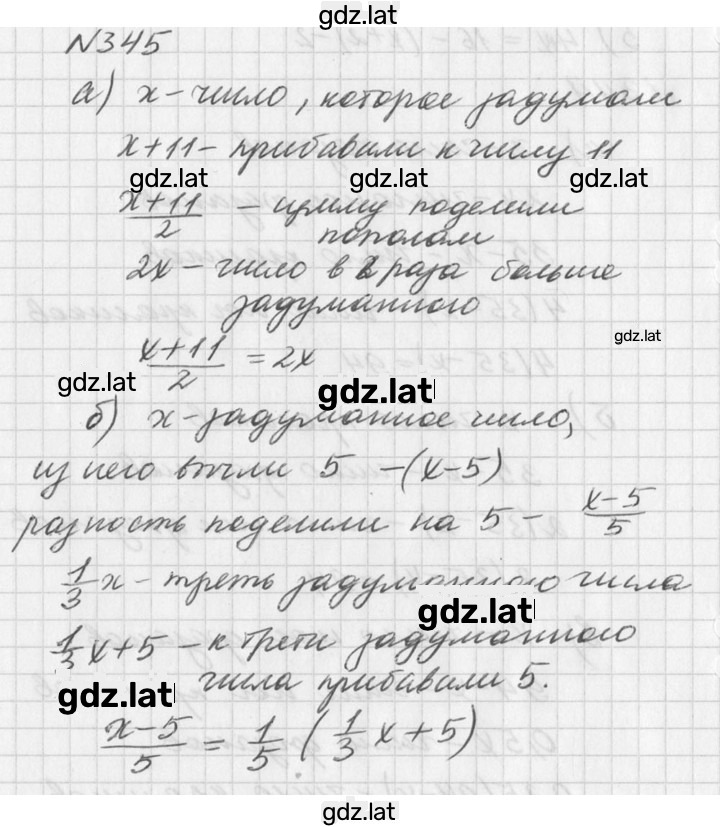 gdz.lat
N345
а) x – число, которое задумали
x+11 – прибавили к числу 11
gdz.lat gdz.lat gdz.lat
x+11/2 – сумму поделили
пополам
2x – число в 2 раза больше
задуманного
gdz.lat
x+11/2 = 2x
gdz.lat gdz.lat
б) x – задуманное число,
из него вычли 5 – (x-5)
разность поделили на 5 – x-5/5
1/3 x – треть задуманного числа
gdz.lat
1/3 x+5 – к трети задуманного
gdz.lat числа прибавили 5.
x-5/5 = 1/5 (1/3 x+5)
gdz.lat